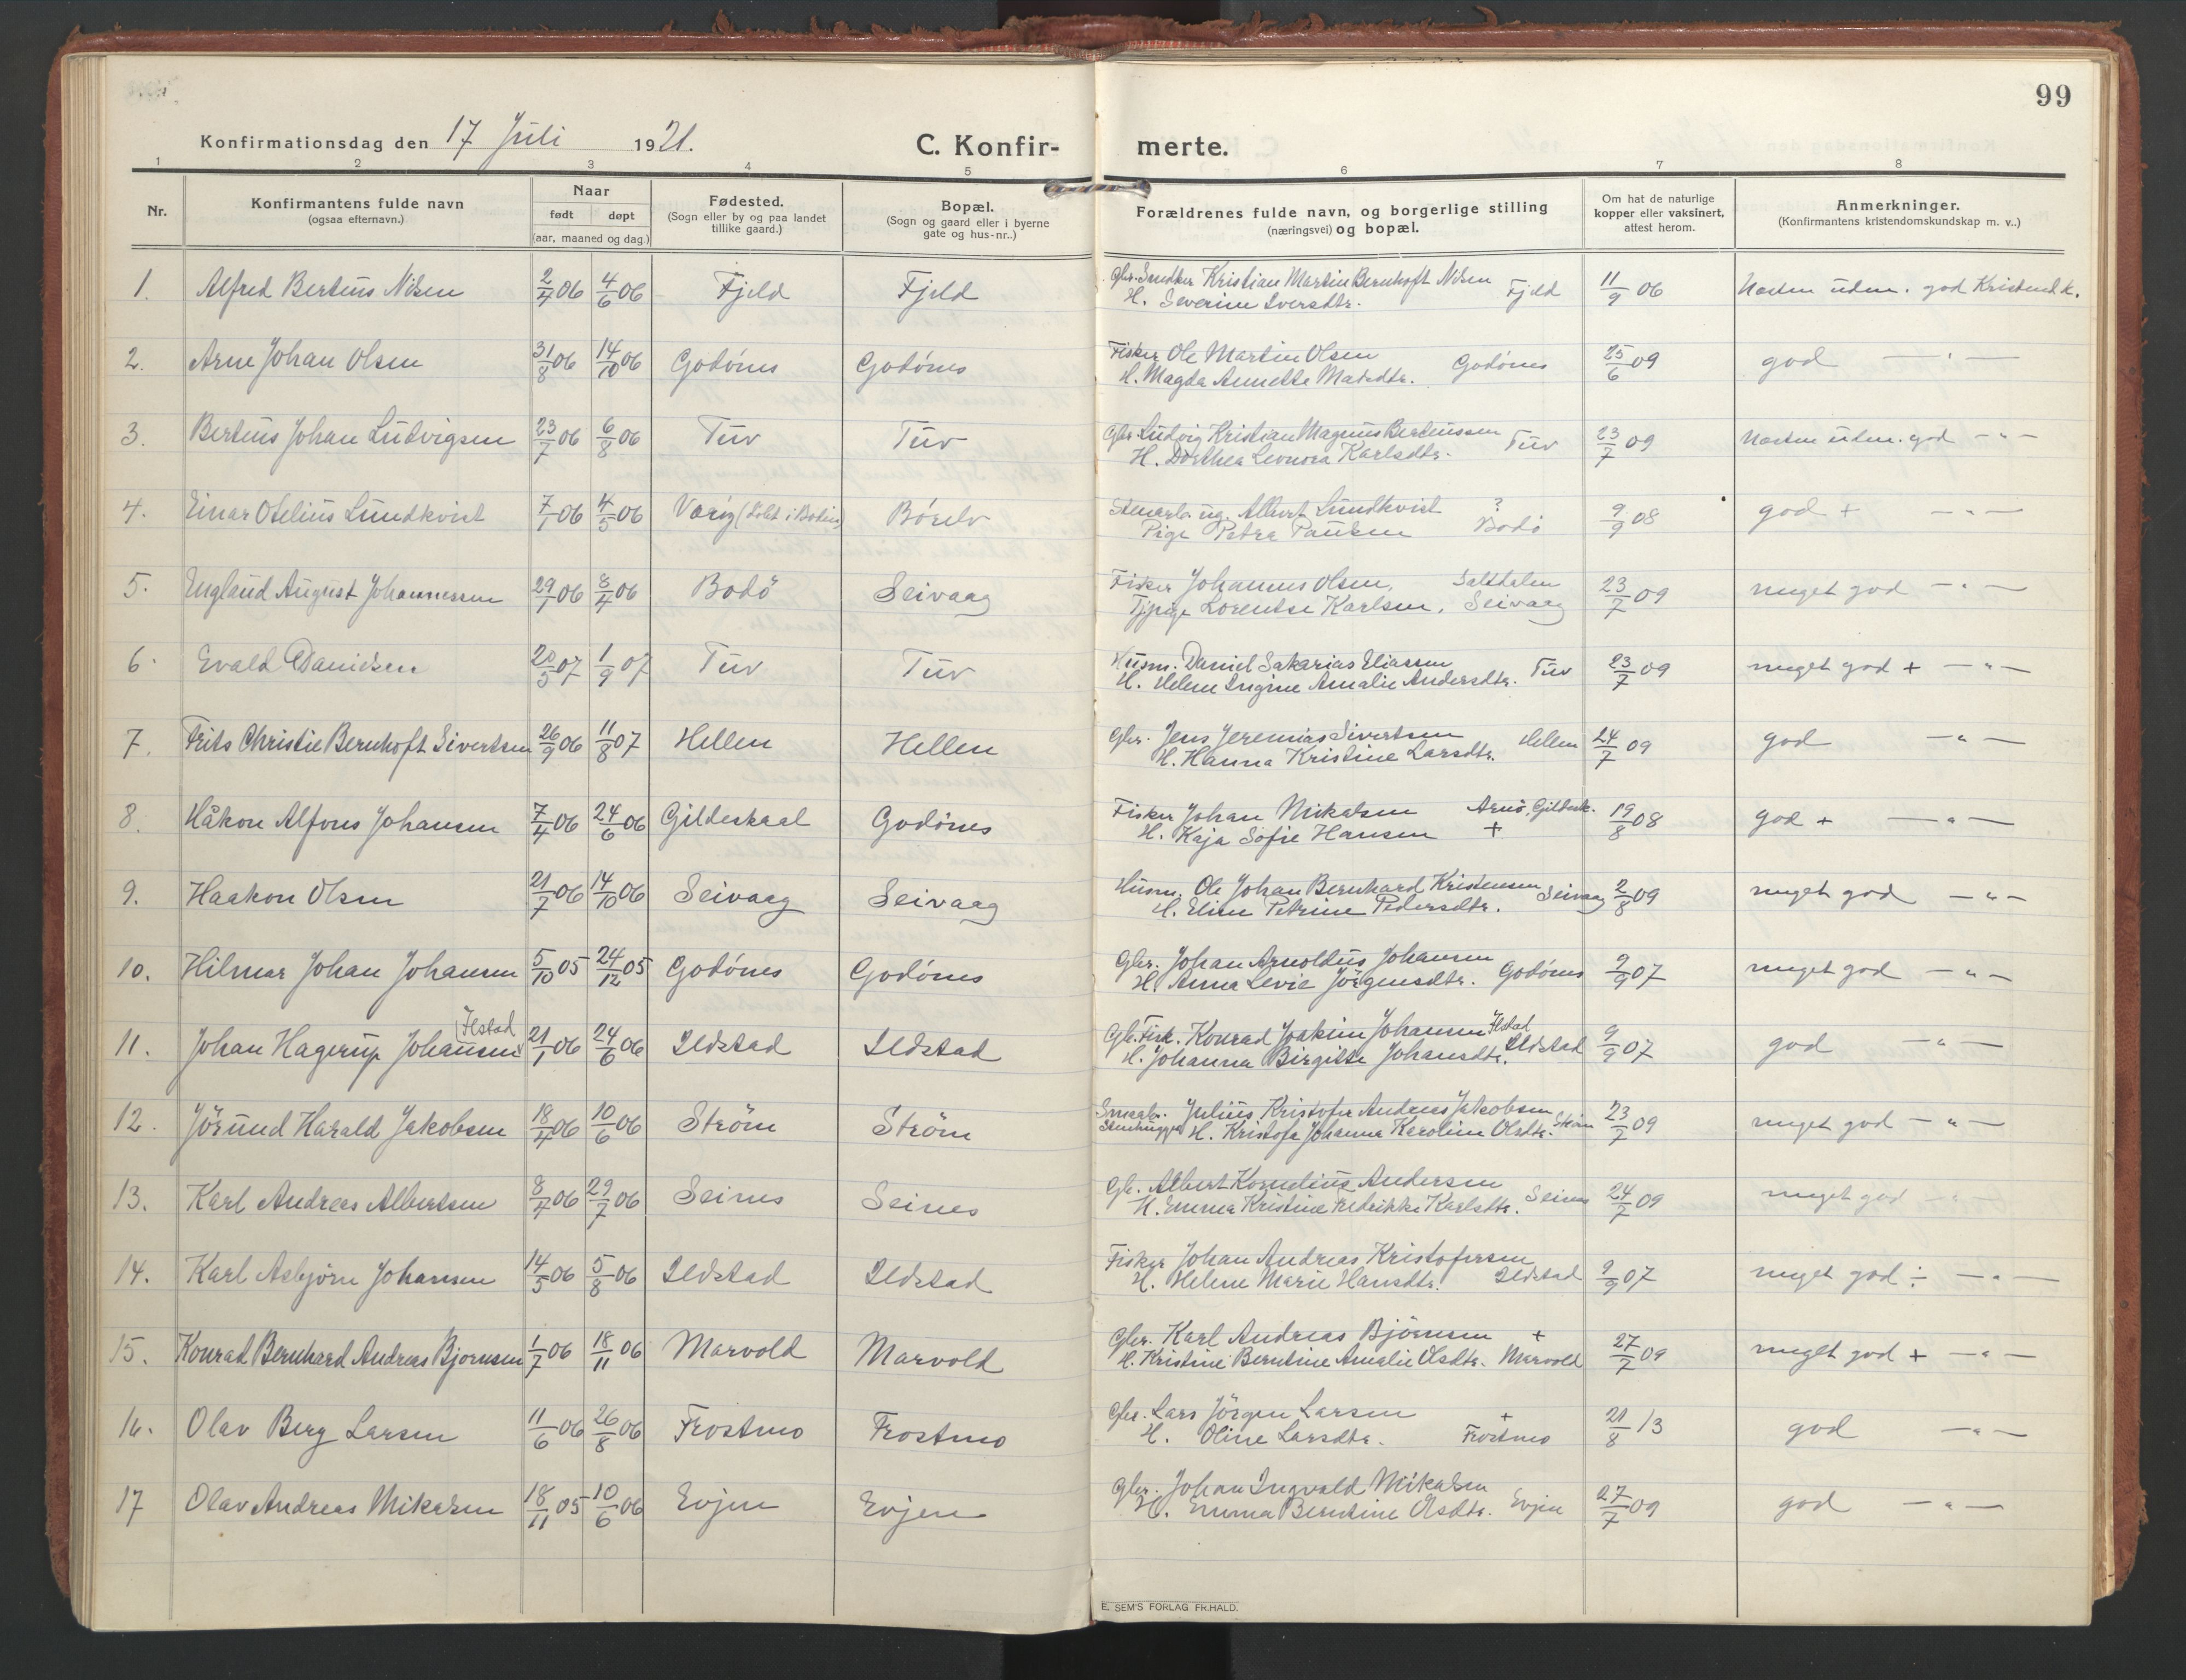 99
Konfirmationsdag den 17 Juli 1921. C. Konfir- merte.
1 2 3 4 5 6 7 8
Nr. Konfirmantens fulde navn (ogsaa efternavn.) Naar født døpt (aar, maaned og dag.) Fødested. (Sogn eller by og paa landet tillike gaard.) Bopæl. (Sogn og gaard eller i byerne gate og hus-nr..) Forældrenes fulde navn, og borgerlige stilling (næringsvei) og bopæl. Om hat de naturlige kopper eller vaksinert, attest herom. Anmerkninger. (Konfirmantens kristendomskundskap m. v..)
1. Alfred Bertius Nilsen 2/4 06 4/6 06 Fjeld Fjeld Gbr. Kristian Martin Bernhoft Nilsen Fjeld 11/9 06 Næsten udm. god Kristend.k.
H. Severine Iversdtr.
2. Arne Johan Olsen 31/8 06 14/10 06 Godönes Godönes Fisker Ole Martin Olsen Godönes 25/6 09 god — " —
H. Magda Annette Matsdtr.
3. Bertius Johan Ludvigsen 23/7 06 6/8 06 Tuv Tuv Gbr. Ludvig Kristian Magnus Bertiussen Tuv 23/7 09 Næsten udm. god — " —
H. Dorthea Leonora Karlsdtr.
4. Einar Otelius Lundkvist 7/1 06 4/5 06 (Döbt i Bodin) Börelv ug. Albert Lundkvist ? 9/9 08 god + — " —
Pige Petra Paulsen Bodö
5. England August Johannessen 29/1 06 8/4 06 Bodö Seivaag Fisker Johannes Olsen, Saltdalen 23/7 09 meget god — " —
Tjpige Lorentse Karlsen, Seivaag
6. Evald Danielsen 20/5 07 1/9 07 Tuv Tuv Husm. Daniel Sakarias Eliassen Tuv 23/7 09 meget god + — " —
H. Helene Ingine Amalie Andersdtr.
7. Frits Christie Bernhoft Sivertsen 26/9 06 11/8 07 Hellen Hellen Gbr. Jens Jeremias Sivertsen Hellen 24/7 09 god — " —
H. Hanna Kristine Larsdtr.
8. Håkon Alfons Johansen 7/4 06 24/6 06 Gildeskaal Godönes Fisker Johan Mikalsen Arnö, Gildesk. 19/8 08 god + — " —
H. Kaja Sofie Hansen +
9. Haakon Olsen 21/7 06 14/10 06 Seivaag Seivaag Husm. Ole Johan Bernhard Kristensen Seivaag 2/8 09 meget god — " —
H. Eline Petrine Pedersdtr.
10. Hilmar Johan Johansen 5/10 05 24/12 05 Godönes Godönes Gbr. Johan Arnoldus Johansen Godönes 9/9 07 meget god — " —
H. Anna Levie Jörgensdtr.
11. Johan Hagerup Johansen (Ilstad 21/1 06 24/6 06 Ildstad Ildstad Gbr. Fisk. Konrad Joakim Johansen Ilstad Ildstad 9/9 07 god — " —
H. Johanna Birgitte Johansdtr.
12. Jörund Harald Jakobsen 18/4 06 10/6 06 Ström Ström Smaabr. Julius Kristofer Andreas Jakobsen Ström 23/7 09 meget god — " —
Stenhugger H. Kristofa Johanna Karoline Olsdtr.
13. Karl Andreas Albertsen 8/4 06 29/7 06 Seines Seines Gb. Albert Kornelius Andersen Seines 24/7 09 meget god — " —
H. Emma Kristine Fredrikke Karlsdtr.
14. Karl Asbjörn Johansen 14/5 06 5/8 06 Ildstad Ildstad Fisker Johan Andreas Kristofersen Ildstad 9/9 07 meget god ÷ — " —
H. Helene Marie Hansdtr.
15. Konrad Bernhard Andreas Bjornsen 1/7 06 18/11 06 Marvold Marvold Gbr. Karl Andreas Björnsen + 27/7 09 meget god + — " —
H. Kristine Berntine Amalie Olsdtr. Marvold
16. Olav Berg Larsen 11/6 06 26/8 06 Frostmo Frostmo Gbr. Lars Jörgen Larsen + 21/8 13 god — " —
H. Oline Larsdtr. Frostmo
17 Olav Andreas Mikalsen 18/11 05 10/6 06 Evjen Evjen Gbr. Johan Ingvald Mikalsen Evjen 27/7 09 god — " —
H. Emma Berntine Olsdtr.
E. SEM'S FORLAG FR.HALD.